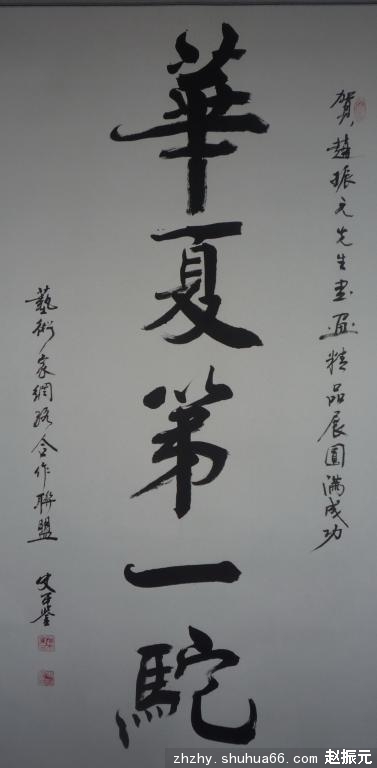 賀趙振元先生書畫精品展圓滿成功
華夏第一駝
藝術家網路合作聯盟
zhzhy.shuhua66.com 赵振元